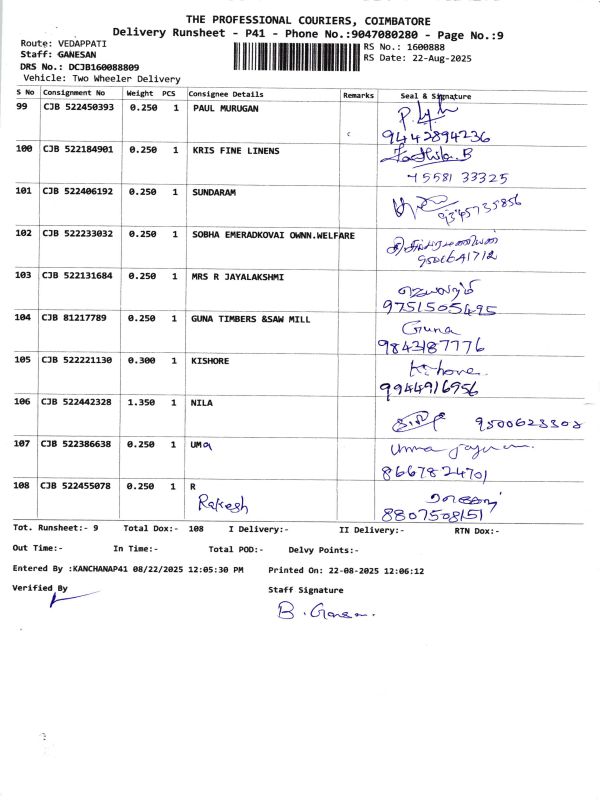 THE PROFESSIONAL COURIERS, COIMBATORE
Delivery Runsheet - P41 - Phone No.:9047080280 - Page No.:9
Route: VEDAPPATI
RS No.: 1600888
Staff: GANESAN
RS Date: 22-Aug-2025
DRS No.: DCJB160088809
Vehicle: Two Wheeler Delivery
S No Consignment No Weight PCS Consignee Details Remarks Seal & Signature
99 CJB 522450393 0.250 1 PAUL MURUGAN
9442894236
100 CJB 522184901 0.250 1 KRIS FINE LINENS
75581 33325
101 CJB 522406192 0.250 1 SUNDARAM
9345735856
102 CJB 522233032 0.250 1 SOBHA EMERADKOVAI OWNN.WELFARE
9500641712
103 CJB 522131684 0.250 1 MRS R JAYALAKSHMI
9751505495
104 CJB 81217789 0.250 1 GUNA TIMBERS &SAW MILL Guna
9843187776
105 CJB 522221130 0.300 1 KISHORE Kishore.
9944916956
106 CJB 522442328 1.350 1 NILA
9500623308
107 CJB 522386638 0.250 1 UMa Uma
8667824701
108 CJB 522455078 0.250 1 R
Rakesh
8807508151
Tot. Runsheet:- 9 Total Dox:- 108 I Delivery:- II Delivery:- RTN Dox:-
Out Time:- In Time:- Total POD:- Delvy Points:-
Entered By :KANCHANAP41 08/22/2025 12:05:30 PM Printed On: 22-08-2025 12:06:12
Verified By Staff Signature
B. Ganesan.